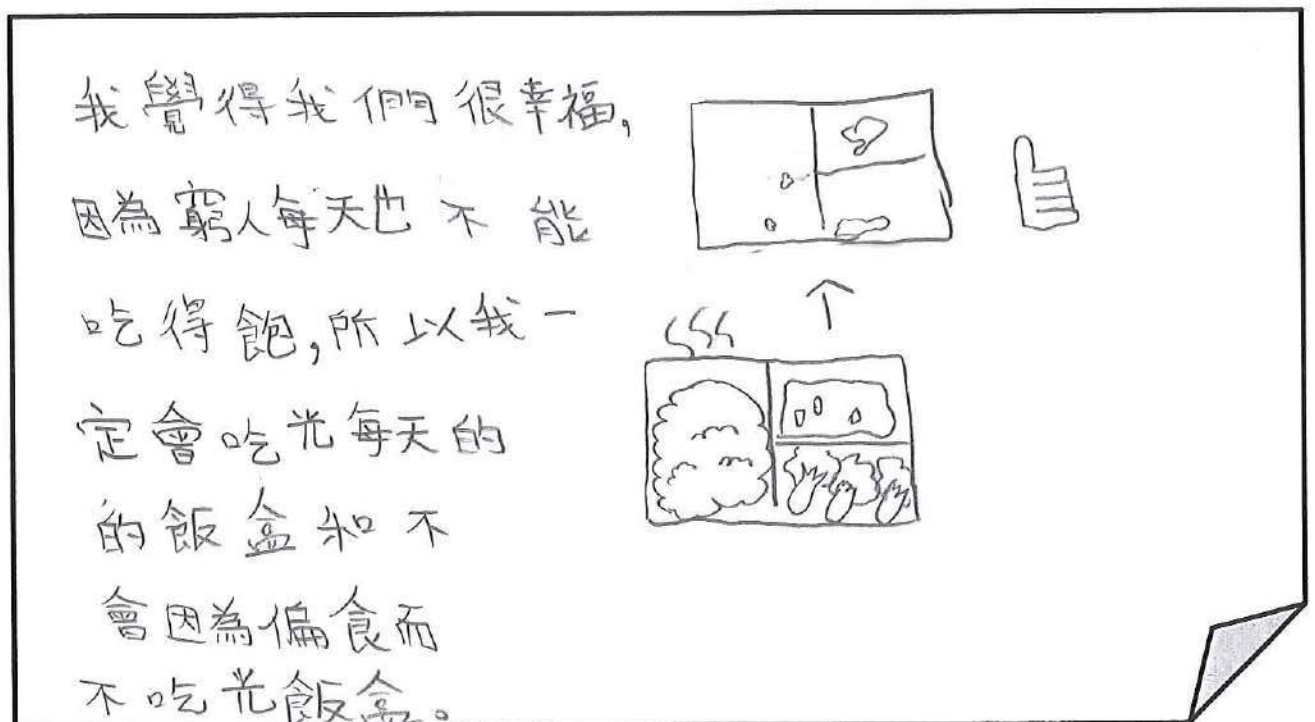 我覺得我們很幸福,
因為窮人每天也不能
吃得飽,所以我一
定會吃光每天的
的飯盒和不
會因為偏食而
不吃光飯盒。